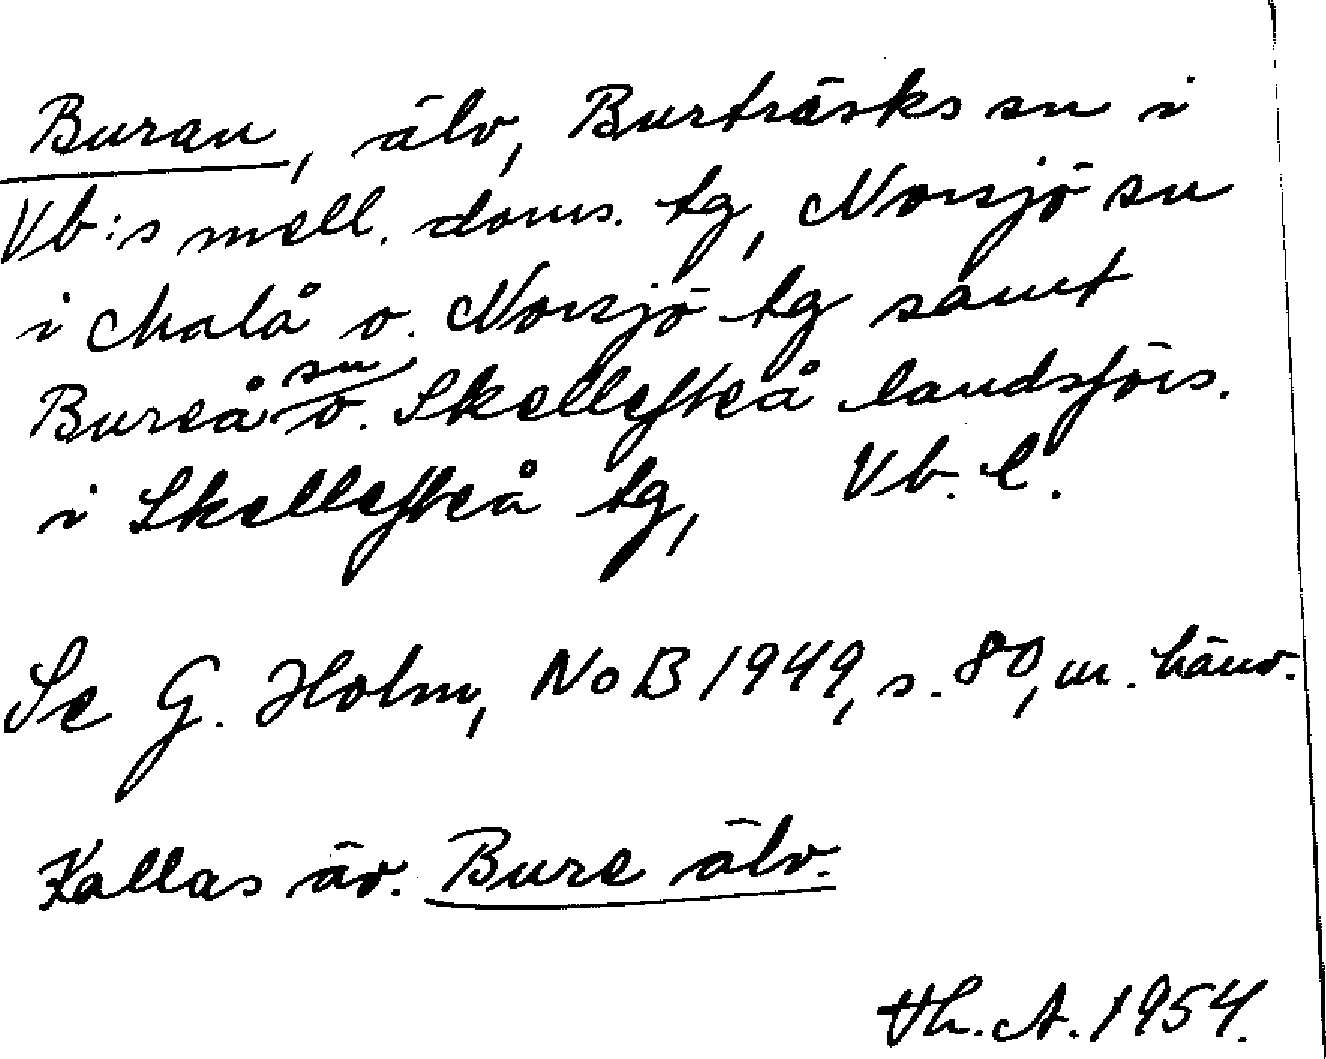 Buran, älv, Burträsks sn i
Vb:s mell. doms. tg, Norsjö sn
i Malå o. Norsjö tg samt
Bureå sn o. Skellefteå landsförs.
i Skellefteå tg, Vb. l.
Se G. Holm, NoB 1949, s. 80, m. hänv.
Kallas äv. Bure älv.
Th. A. 1954.